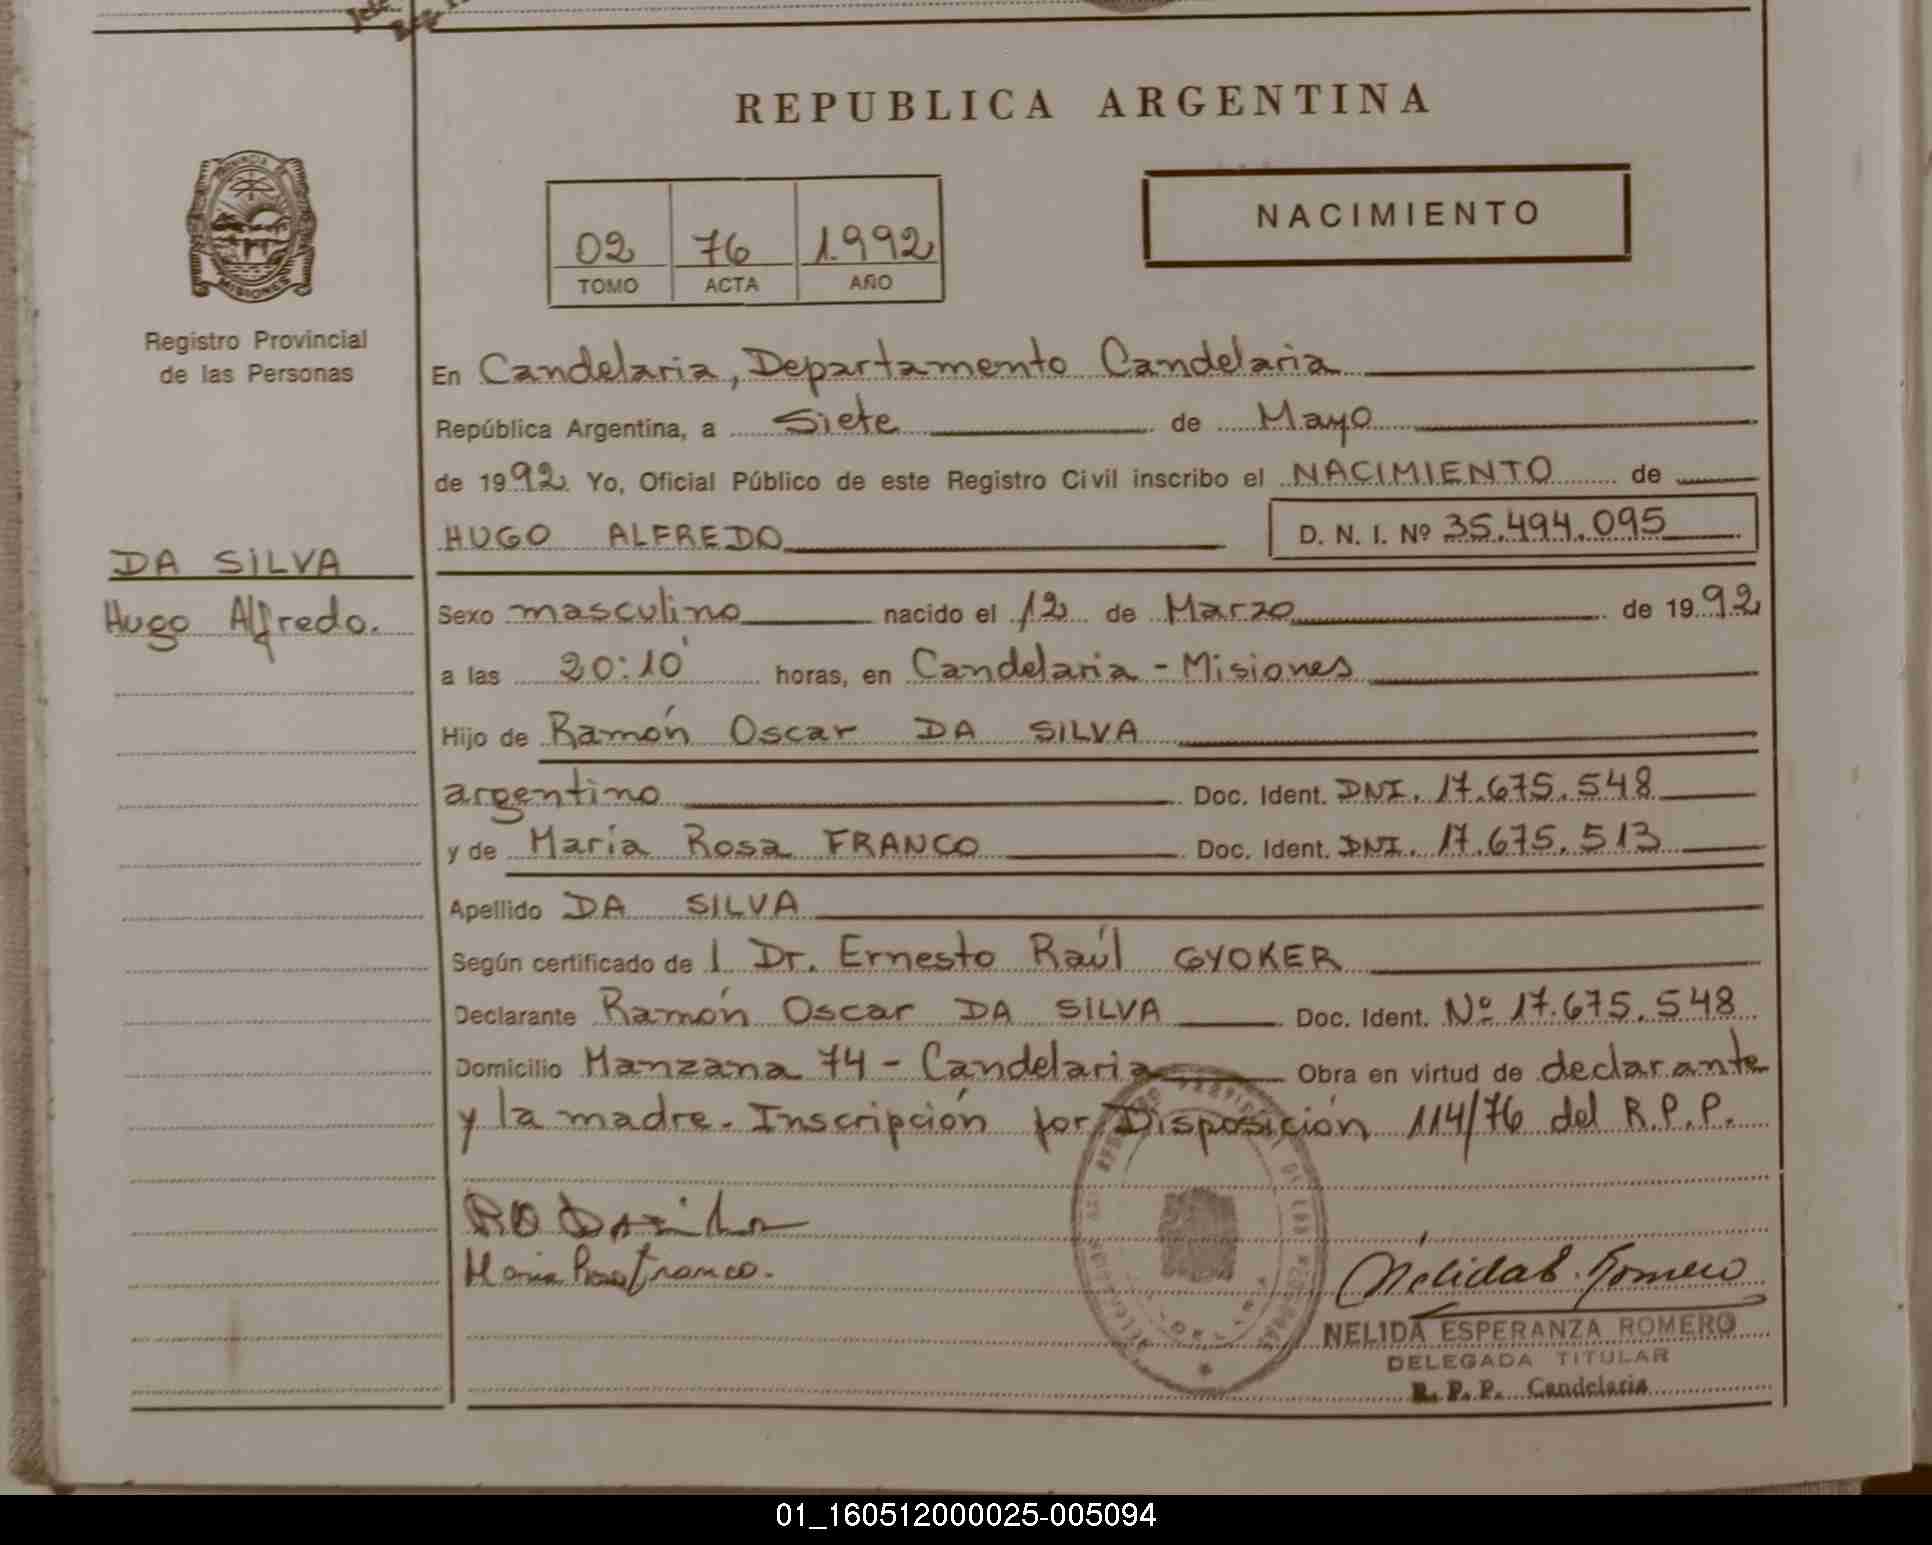 REPUBLICA ARGENTINA
PROVINCIA
MISIONES
Registro Provincial
de las Personas
02 76 1.992
TOMO ACTA AÑO
NACIMIENTO
En Candelaria, Departamento Candelaria
República Argentina, a Siete de Mayo
de 1992. Yo, Oficial Público de este Registro Civil inscribo el NACIMIENTO de
HUGO ALFREDO D. N. I. Nº 35.494.095
DA SILVA
Hugo Alfredo.
Sexo masculino nacido el 12 de Marzo de 1992
a las 20:10' horas, en Candelaria - Misiones
Hijo de Ramón Oscar DA SILVA
argentino Doc. Ident. DNI. 17.675.548
y de María Rosa FRANCO Doc. Ident. DNI. 17.675.513
Apellido DA SILVA
Según certificado de l Dr. Ernesto Raúl GYOKER
Declarante Ramón Oscar DA SILVA Doc. Ident. Nº 17.675.548
Domicilio Manzana 74 - Candelaria Obra en virtud de declarante
y la madre. Inscripción por Disposición 114/76 del R.P.P.
Maria Rosa Franco.
Nelida E. Romero
NELIDA ESPERANZA ROMERO
DELEGADA TITULAR
R. P. P. Candelaria
01_160512000025-005094